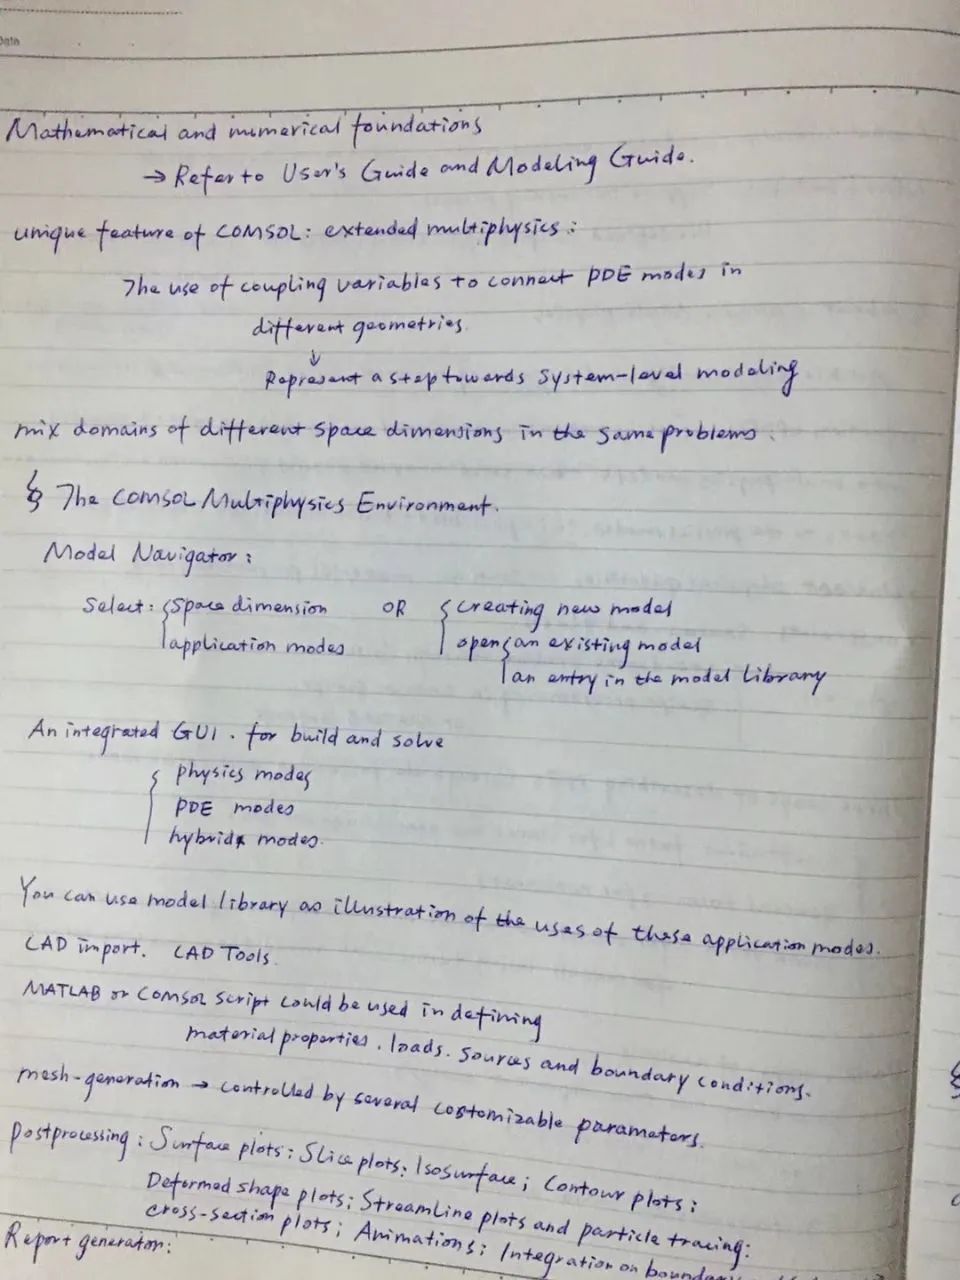 Date
Mathematical and numerical foundations
→ Refer to User's Guide and Modeling Guide.
unique feature of COMSOL: extended multiphysics:
The use of coupling variables to connect PDE modes in
different geometries.
↓
Represent a step towards system-level modeling
mix domains of different space dimensions in the same problems:
§ The COMSOL Multiphysics Environment.
Model Navigator:
Select: { space dimension OR { creating new model
application modes open { an existing model
an entry in the model library
An integrated GUI. for build and solve
{ physics modes
PDE modes
hybrid modes.
You can use model library as illustration of the uses of these application modes.
CAD import. CAD Tools.
MATLAB or COMSOL script could be used in defining
material properties. loads. sources and boundary conditions.
mesh-generation → controlled by several costomizable parameters.
Postprocessing: Surface plots; Slice plots; Isosurface; Contour plots;
Deformed shape plots; Streamline plots and particle tracing;
cross-section plots; Animations; Integration on
Report generator: